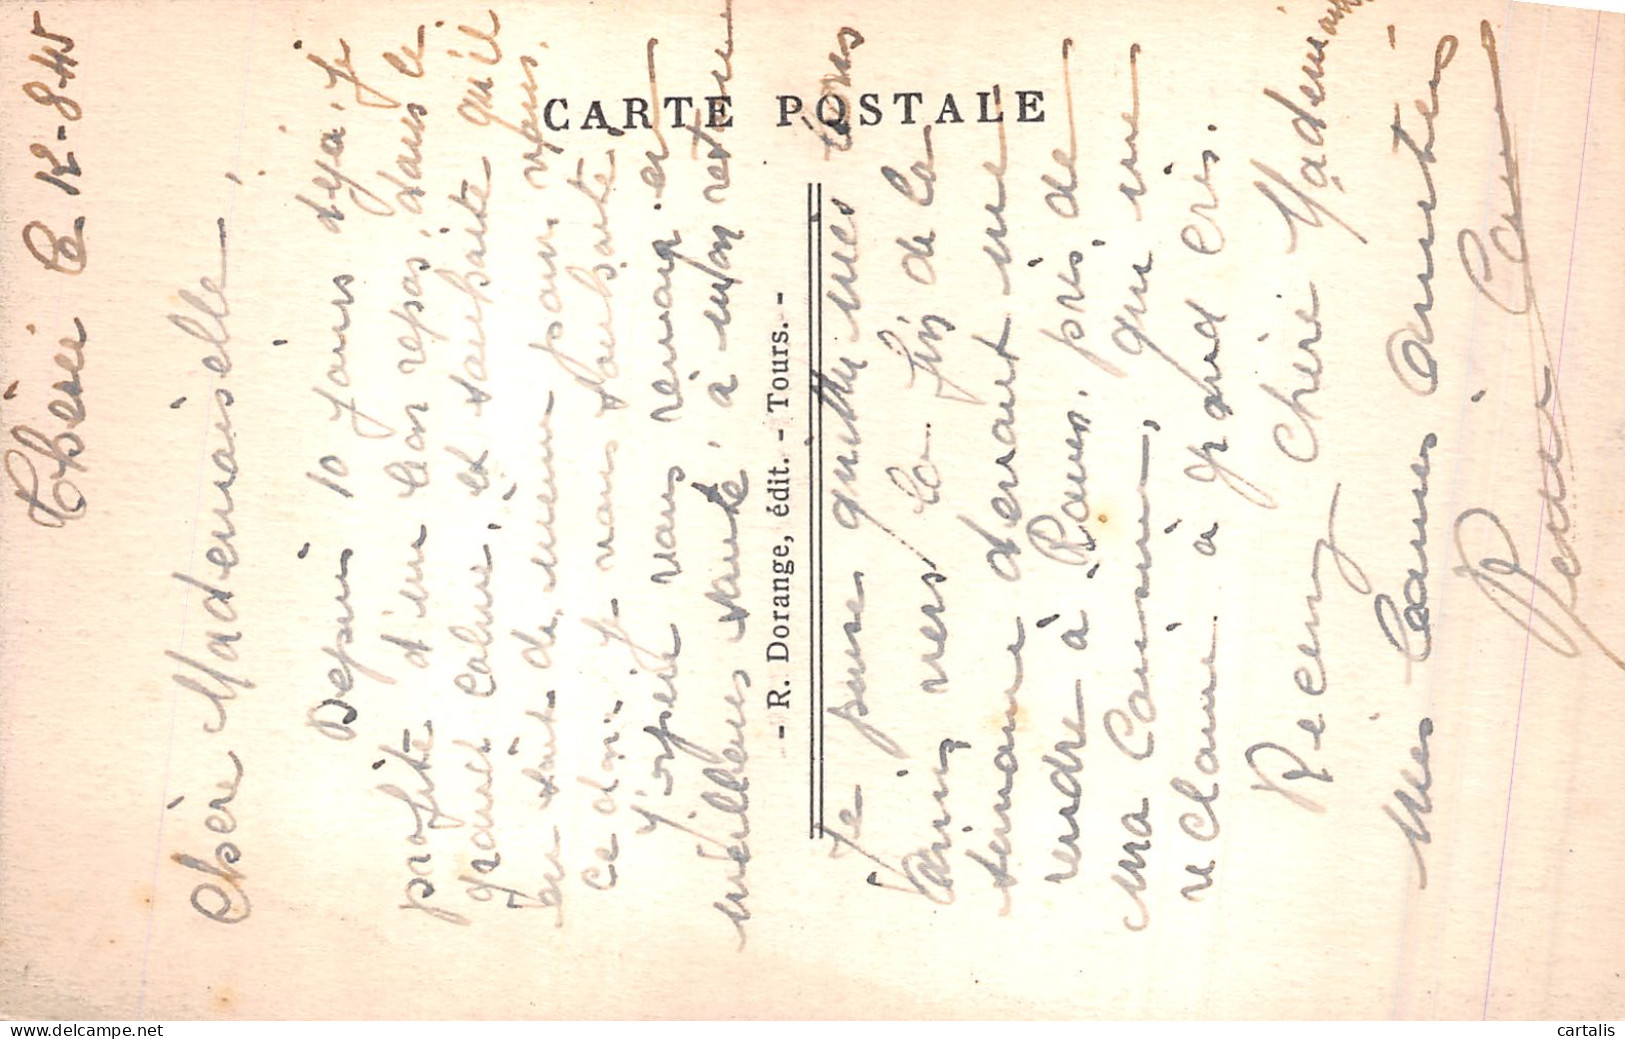 le 12-8-45
Chère Mademoiselle,
Depuis 10 jours déjà je
profite d'un bon repos, dans le
grand calme, et souhaite qu'il
en soit de même pour vous.
Ce dont je vous souhaite
J'espère vous revoir en
meilleure santé, à mon retour
Je pense quitter mes bons
amis vers la fin de la
semaine devant me
rendre à près de
ma cousine, qui me
réclame à grand cris.
Recevez Chère Mademoiselle
Mes bonnes amitiés
CARTE POSTALE
- R. Dorange, édit. - Tours. -
cartalis